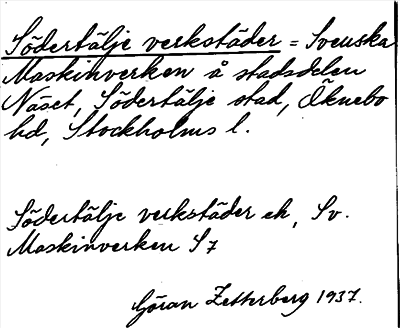 Södertälje verkstäder = Svenska
Maskinverken å stadsdelen
Näset, Södertälje stad, Öknebo
hd, Stockholms l.
Södertälje verkstäder ek, Sv.
Maskinverken S 7
Göran Zetterberg 1937.